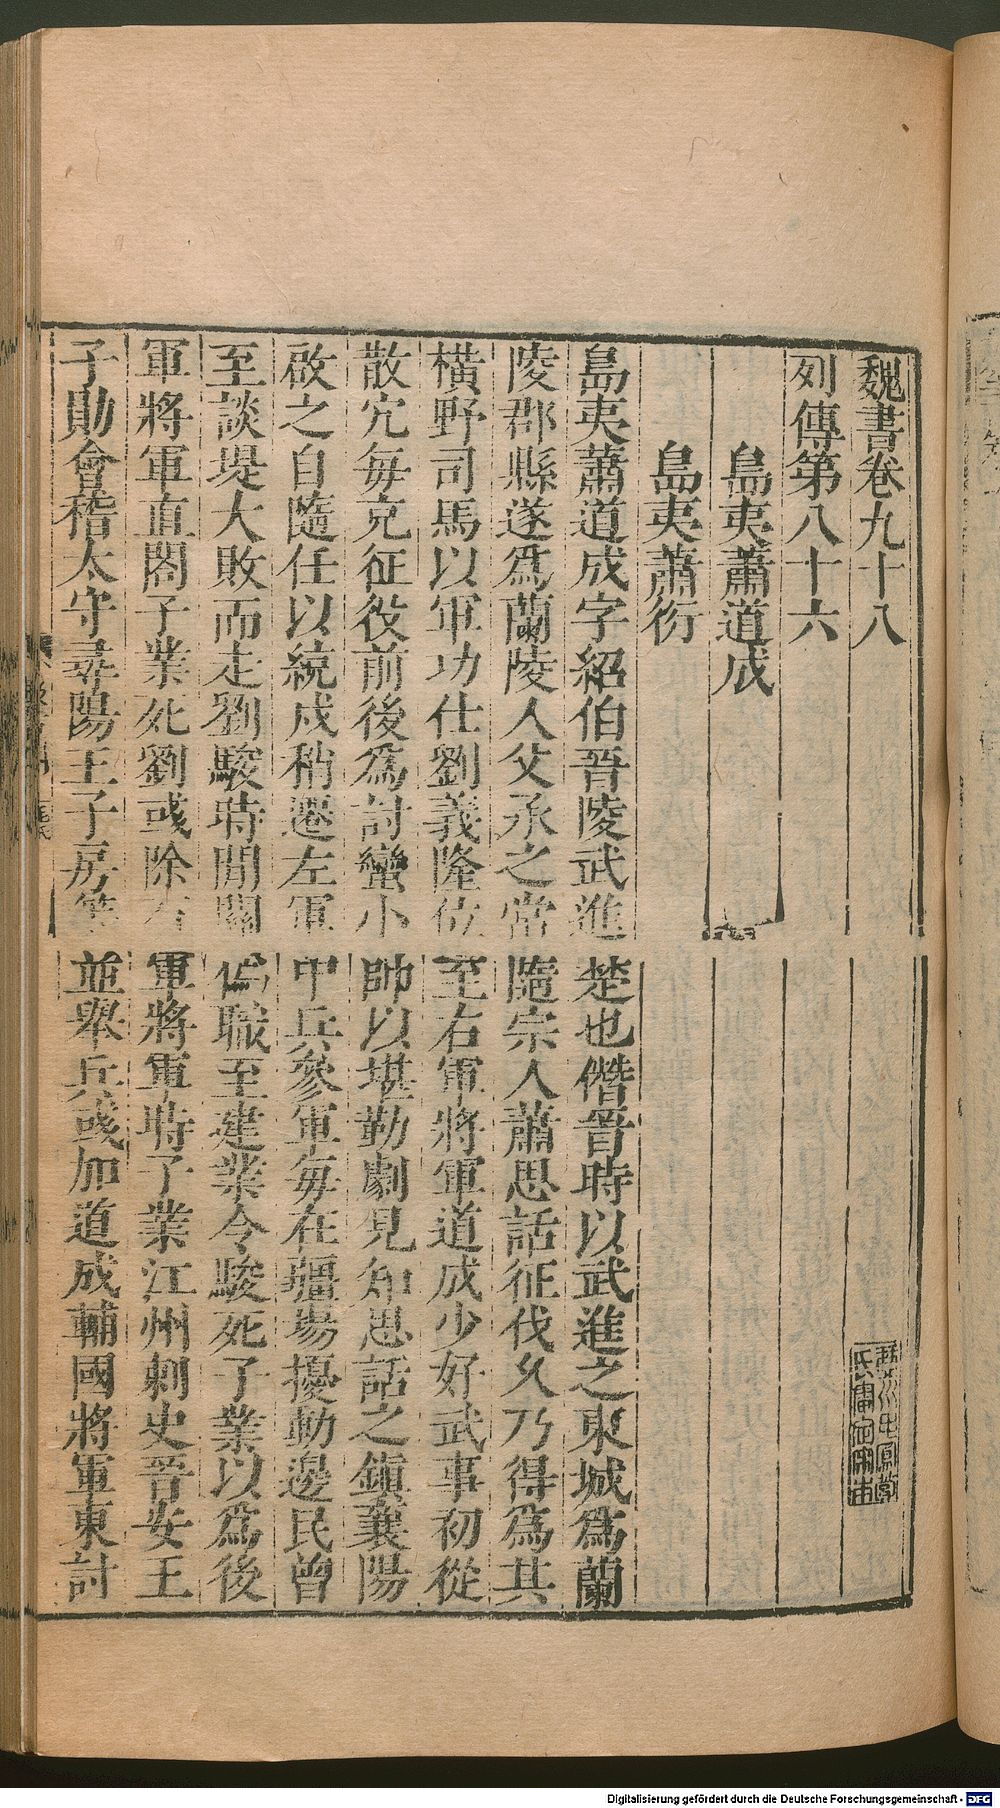 魏書卷九十八
列傳第八十六
島夷蕭道成
島夷蕭衍
島夷蕭道成字紹伯晉陵武進楚也僭晉時以武進之東城爲蘭
陵郡縣遂爲蘭陵人父承之常隨宗人蕭思話征伐久乃得爲其
橫野司馬以軍功仕劉義隆位至右軍將軍道成少好武事初從
散冗每充征役前後爲討蠻小帥以堪勤劇見知思話之鎮襄陽
啟之自隨任以統戍稍遷左軍中兵參軍每在疆場擾動邊民曾
至談堤大敗而走劉駿時間關僞職至建業令駿死子業以爲後
軍將軍直閤子業死劉彧除右軍將軍時子業江州刺史晉安王
子勛會稽太守尋陽王子房等並舉兵彧加道成輔國將軍東討
Digitalisierung gefördert durch die Deutsche Forschungsgemeinschaft - DFG